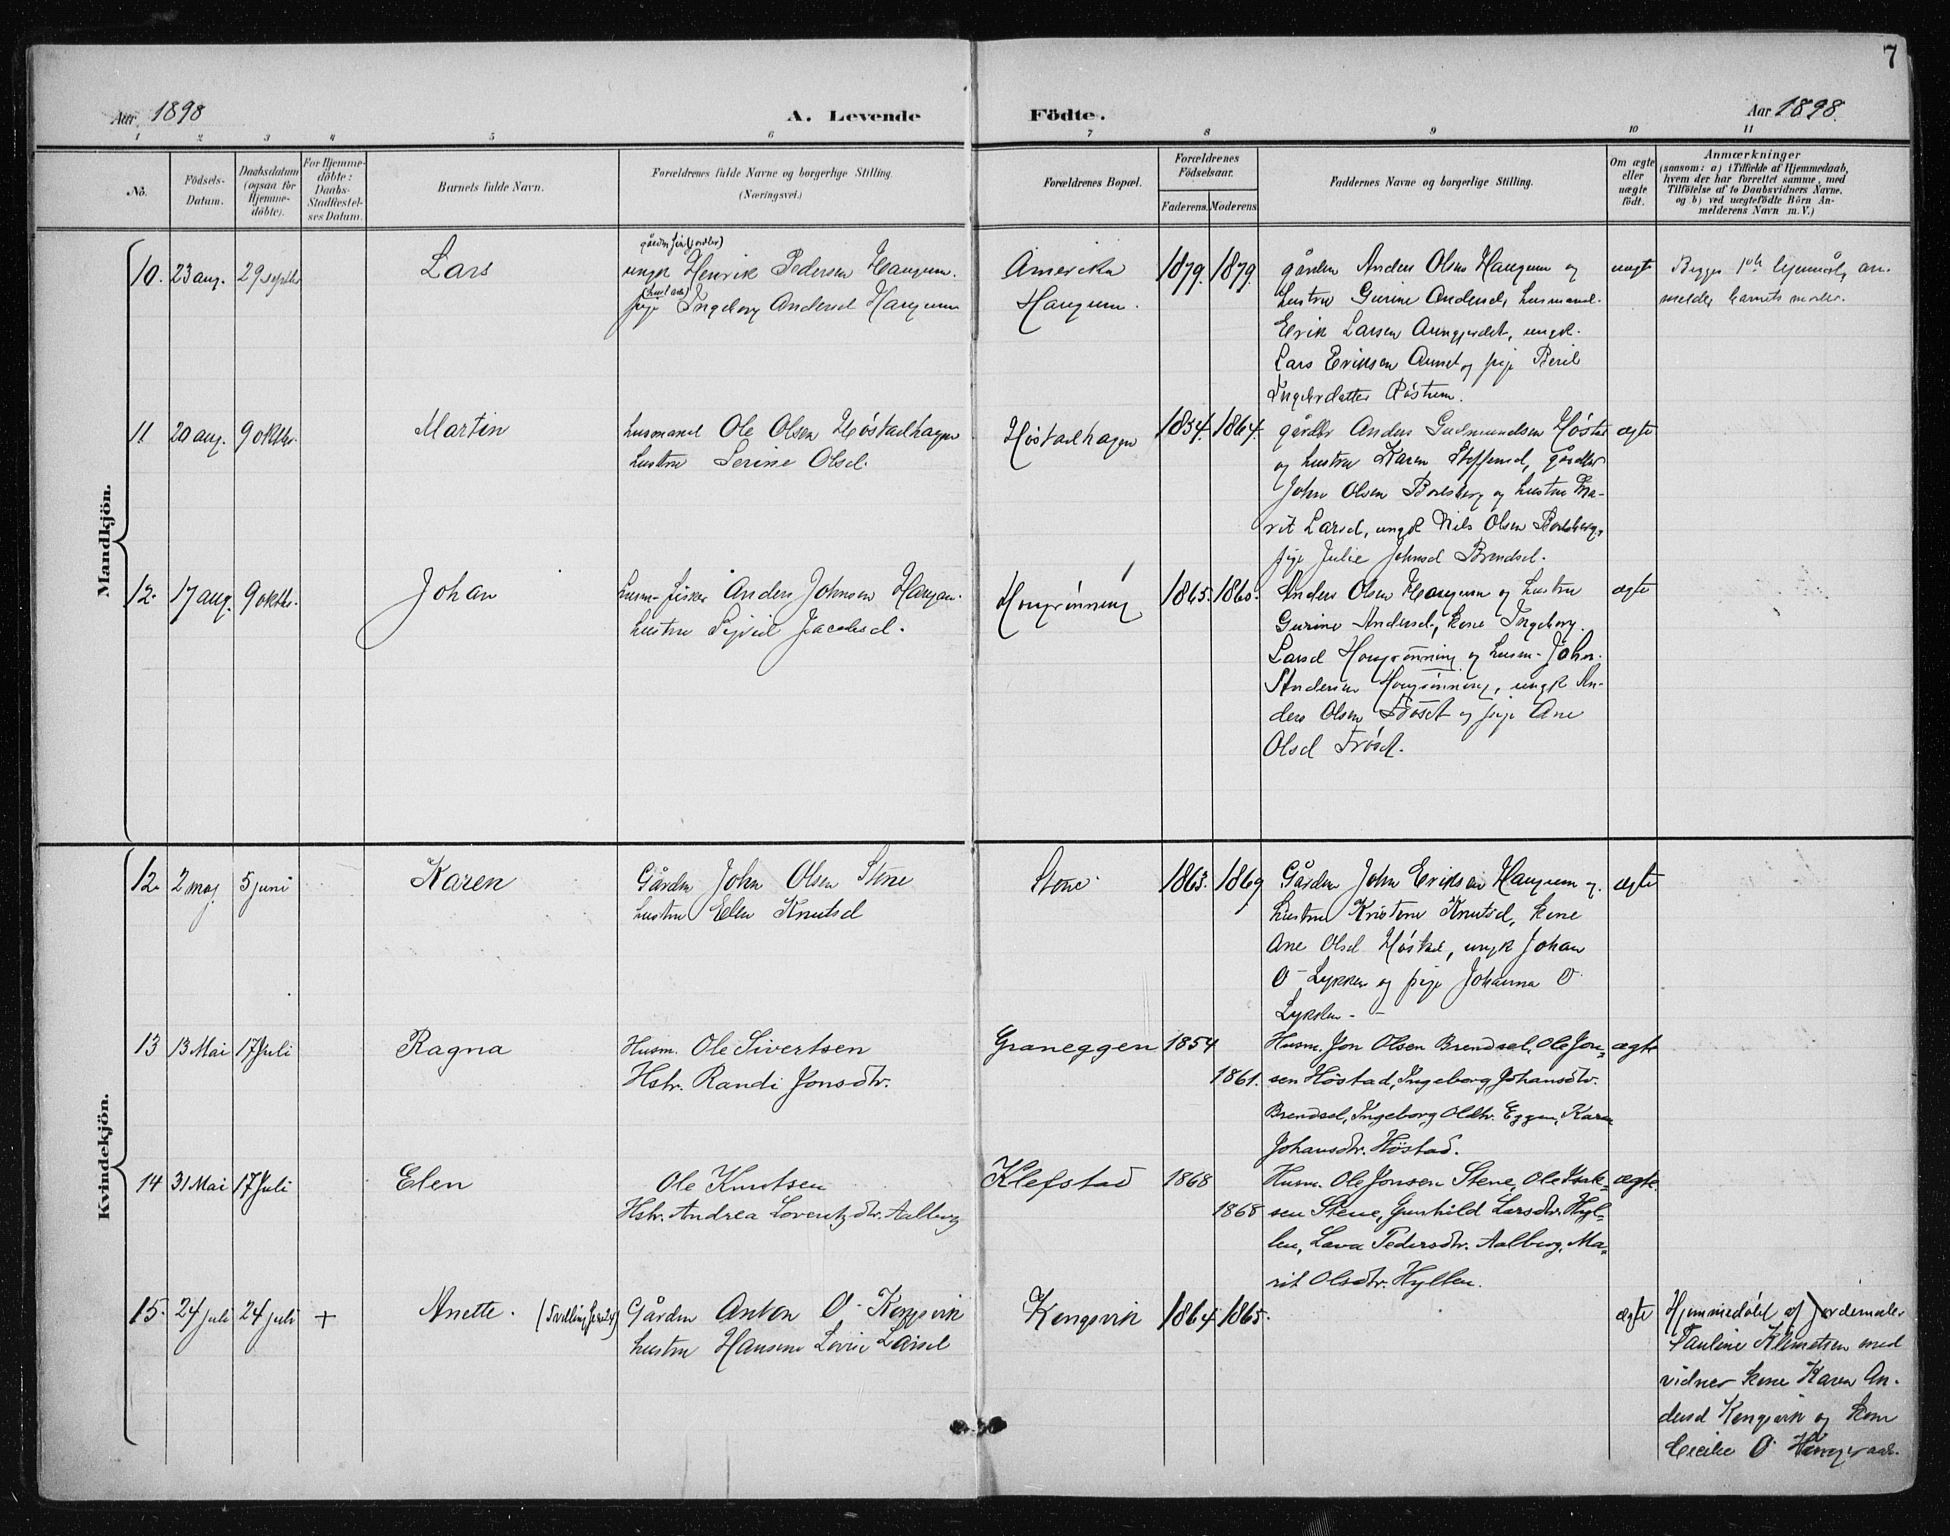 7
Aar 1898
A. Levende Födte.
Aar 1898.
1 2 3 4 5 6 7 8 9 10 11
No.
Födsels-Datum.
Daabsdatum (ogsaa for Hjemme-döbte).
For Hjemme-döbte: Daabs-Stadfæstel-ses Datum.
Barnets fulde Navn.
Forældrenes fulde Navne og borgerlige Stilling.
(Næringsvei.)
Forældrenes Bopæl.
Forældrenes Födselsaar.
Faderens. Moderens.
Faddernes Navne og borgerlige Stilling.
Om ægte eller uægte födt.
Anmærkninger
(saasom: a) i Tilfælde af Hjemmedaab,
hvem der har forrettet samme, med
Tilföielse af to Daabsvidners Navne,
og b) ved uægtefödte Börn An-
melderens Navn m. V.)
Mandkjön.
10. 23 aug. 29 septbr Lars
ungk Henrik Pedersen Haugum.
pige Ingeborg Andersd Haugum
Amerika
Haugum.
1879. 1879.
gårdm Anders Olsen Haugum og
hustru Gurine Andersd, husmand
Erik Larsen, ungk.
Lars Eriksen Aunet og pige Beril
Ingebrdatter Röstum.
uægte
Begges 1ste lejermål, an-
melder barnets moder.
11 20 aug. 9 oktbr. Martin
husmand Ole Olsen Høstadhagen
hustru Serine Olsd.
Høstadhagen
1834. 1864.
gårdbr Anders Gudmundsen Høstad
og hustru Karen Steffensd, gårdbr
John Olsen Boresberg og hustru Ma-
rit Larsd, ungk Nils Olsen
pige Julie Johnsd Brendsel.
ægte
12. 17 aug. 9 oktbr. Johan
husm- fisker Anders Johnsen Haugan.
hustru Sigrid Jacobsd.
Hougrønning
1865. 1860.
Anders Olsen Haugum og hustru
Gurine Andersd, kone Ingeborg
Larsd Hougrønning og husm- John
Andersen Hougrønning, ungk An-
ders Olsen Trøset og pige Ane
Olsd Trøset.
ægte
Kvindekjön.
12. 2 maj 5 juni Karen
Gårdm John Olsen Stene
hustru Elen Knutsd
Stene.
1863. 1869
Gårdm John Eriksen Haugum og
hustru Kristine Knutsd, kone
Ane Olsd Høstad, ungk Johan
O- Lykken og pige Johanna O
Lykken -
ægte
13 13 Mai 17 Juli Ragna
Husm. Ole Sivertsen
Hstr. Randi Jonsdtr.
Graneggen
1854
1861.
Husm. Jon Olsen Brendsel, Ole Jon-
sen Höstad, Ingeborg Johansdtr.
Brendsel, Ingeborg Oldtr. Eggen, Karen
Johansdtr. Höstad.
ægte
14 31 Mai 17 Juli Elen
Ole Knutsen
Hstr. Andrea Lorentzdtr. Aalberg
Klefstad
1868
1868
Husm. Ole Jonsen Stene, Ole Isak-
sen Stene, Gunhild Larsdtr. Hyl-
len, Lava Pedersdtr. Aalberg, Ma-
rit Olsdtr. Hyllen.
ægte.
15. 24 juli 24 juli + Anette.
Gårdm Anton O- Kongsvik
hustru Hansine Lovise Larsd
Kongsvik
1864 1865.
ægte
Hjemmedøbt af Jordemoder
Pauline Klemetsen med
vidner kone Karen An-
dersd Kongsvik og kone
Cecilie O-